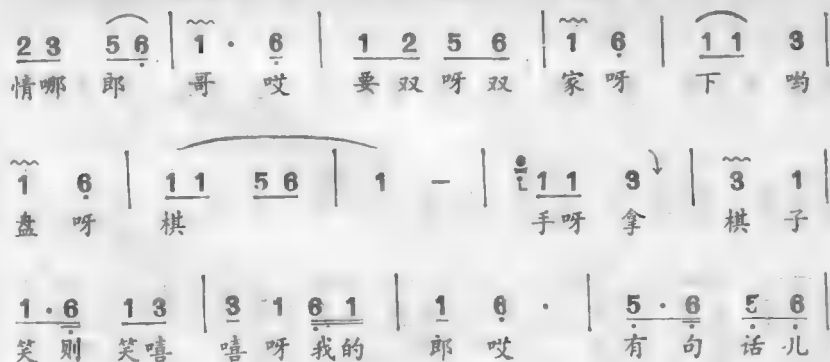 2 3 5 6 | 1 · 6 | 1 2 5 6 | 1 6 | 1 1 3 |
情哪 郎 哥 哎 要 双 呀 双 家 呀 下 哟
1 6 | 1 1 5 6 | 1 – | 6 1 1 3 | 3 1 |
盘 呀 棋 手呀 拿 棋 子
1 · 6 1 3 | 3 1 6 1 | 1 6 · | 5 · 6 5 6 |
笑 则 笑嘻 嘻 呀 我的 郎 哎 有 句 话 儿